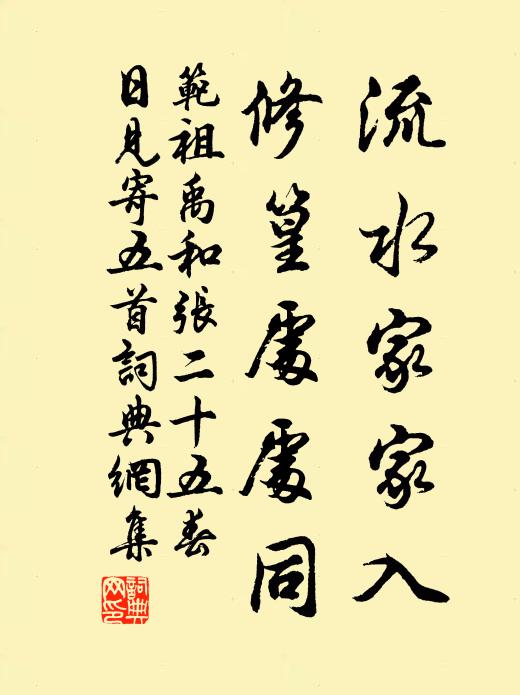 流水家家入
修篁處處同
範祖禹和張二十五春
日見寄五首詞典網集
詞典
网印